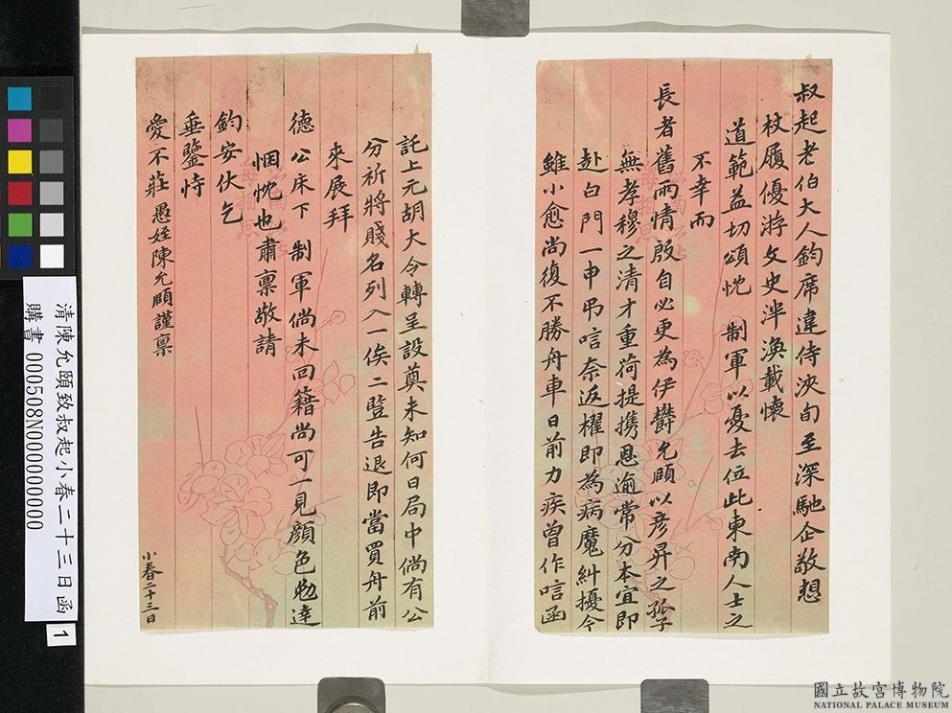 叔起老伯大人鈞席違侍浹旬至深馳企敬想
杖履優游文史泮渙載懷
道範益切頌忱 制軍以憂去位此東南人士之
不幸而
長者舊雨情殷自必更為伊鬱允頤以彥昇之孤子
無孝穆之清才重荷提攜恩逾常分本宜即
赴白門一申弔唁奈返櫂即為病魔糾擾今
雖小愈尚復不勝舟車日前力疾曾作唁函
託上元胡大令轉呈設奠未知何日局中倘有公
分祈將賤名列入一俟二豎告退即當買舟前
來展拜
德公床下 制軍倘未回籍尚可一見顏色勉達
悃忱也肅稟敬請
鈞安伏乞
垂鑒恃
愛不莊愚姪陳允頤謹稟
小春二十三日
清陳允頤致叔起小春二十三日函
購書 000508N000000000
1
國立故宮博物院
NATIONAL PALACE MUSEUM